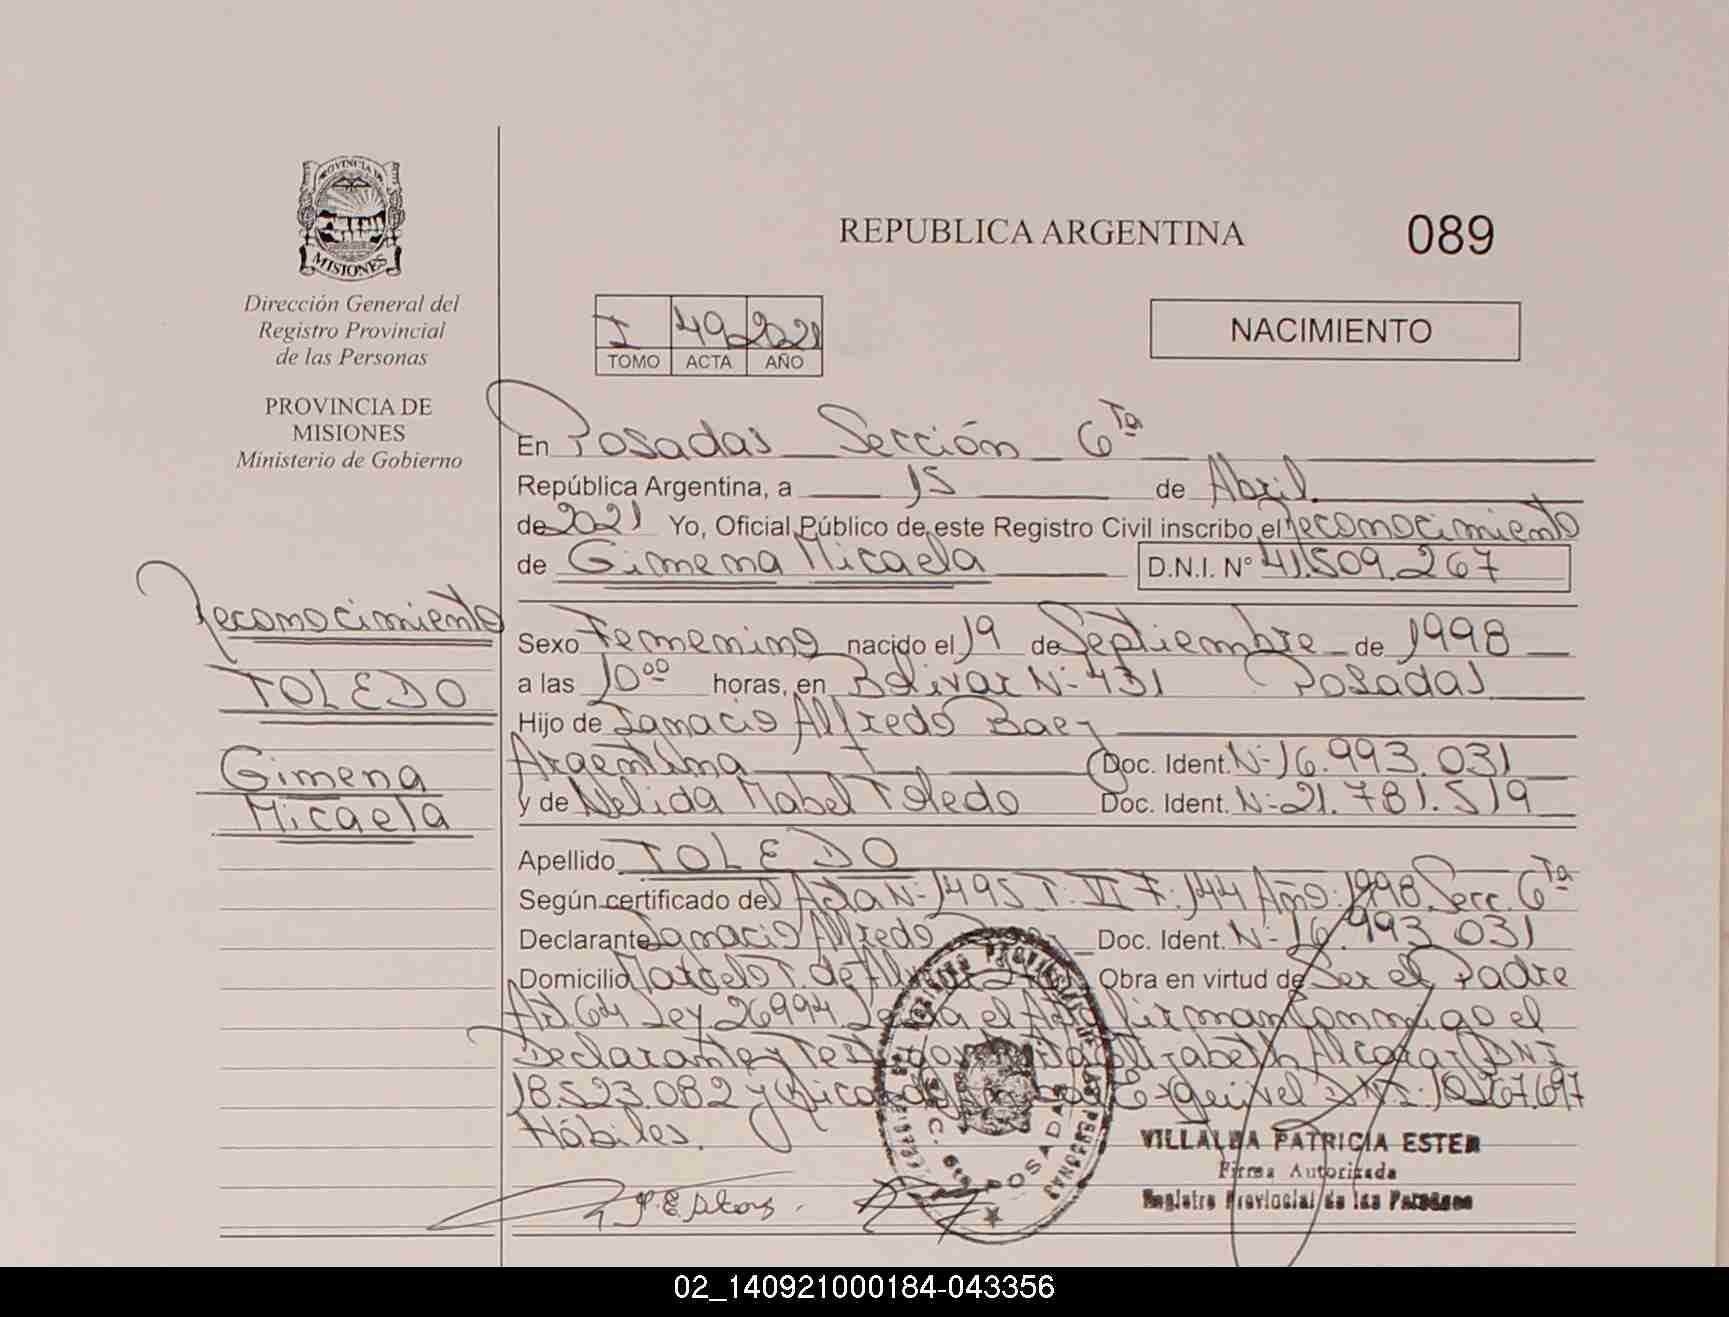 PROVINCIA DE
MISIONES
Dirección General del
Registro Provincial
de las Personas
PROVINCIA DE
MISIONES
Ministerio de Gobierno
Reconocimiento
TOLEDO
Gimena
Micaela
REPUBLICA ARGENTINA
089
I 49 2021
TOMO ACTA AÑO
NACIMIENTO
En Posadas Sección 6ta
República Argentina, a 15 de Abril
de 2021 Yo, Oficial Público de este Registro Civil inscribo el reconocimiento
de Gimena Micaela D.N.I. N° 41.509.267
Sexo Femenino nacido el 19 de Septiembre de 1998
a las 10 00 horas, en Bolivar N- 431 Posadas
Hijo de Ignacio Alfredo Baez
Argentina Doc. Ident. N- 16.993.031
y de Nelida Mabel Toledo Doc. Ident. N- 21.781.519
Apellido TOLEDO
Según certificado del Acta N- 1495 T. VI F. 144 Año: 1998 Secc. 6ta
Declarante Ignacio Alfredo Doc. Ident. N- 16.993.031
Domicilio Marcelo T. de Obra en virtud de Ser el Padre
Art 64 Ley 26994 el firman conmigo el
Declarante y Elizabeth Alcaraz DNI
18.523.082 y Esquivel DNI: 10.267.697
Hábiles.
SECC. 6ta
POSADAS
VILLALBA PATRICIA ESTER
Firma Autorizada
Registro Provincial de las Personas
02_140921000184-043356